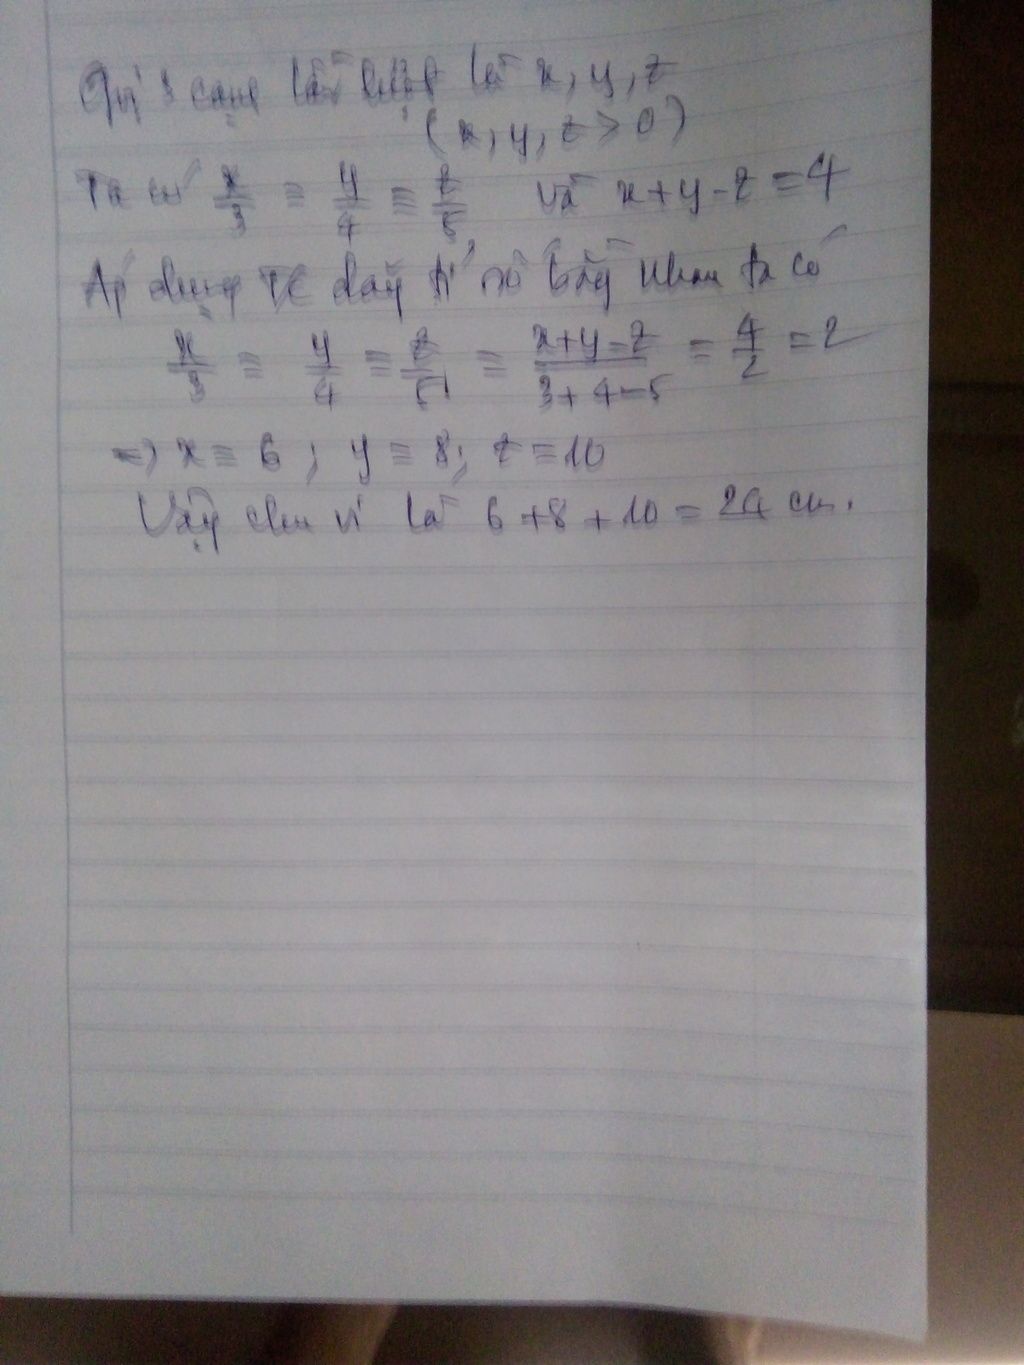 Gọi 3 cạnh lần lượt là x, y, z
(x, y, z > 0)
Ta có x/3 = y/4 = z/5 và x+y-z = 4
Áp dụng TC dãy tỉ số bằng nhau ta có
x/3 = y/4 = z/5 = x+y-z/3+4-5 = 4/2 = 2
=> x = 6 ; y = 8; z = 10
Vậy chu vi là 6 + 8 + 10 = 24 cm.